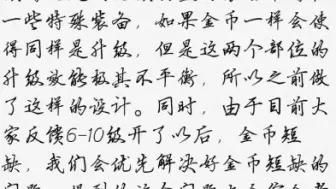 一些特殊装备，如果金币一样会使
得同样是升级，但是这两个部位的
升级效能极其不平衡，所以之前做
了这样的设计。同时，由于目前大
家反馈6-10级开了以后，金币短
缺，我们会优先解决好金币短缺的